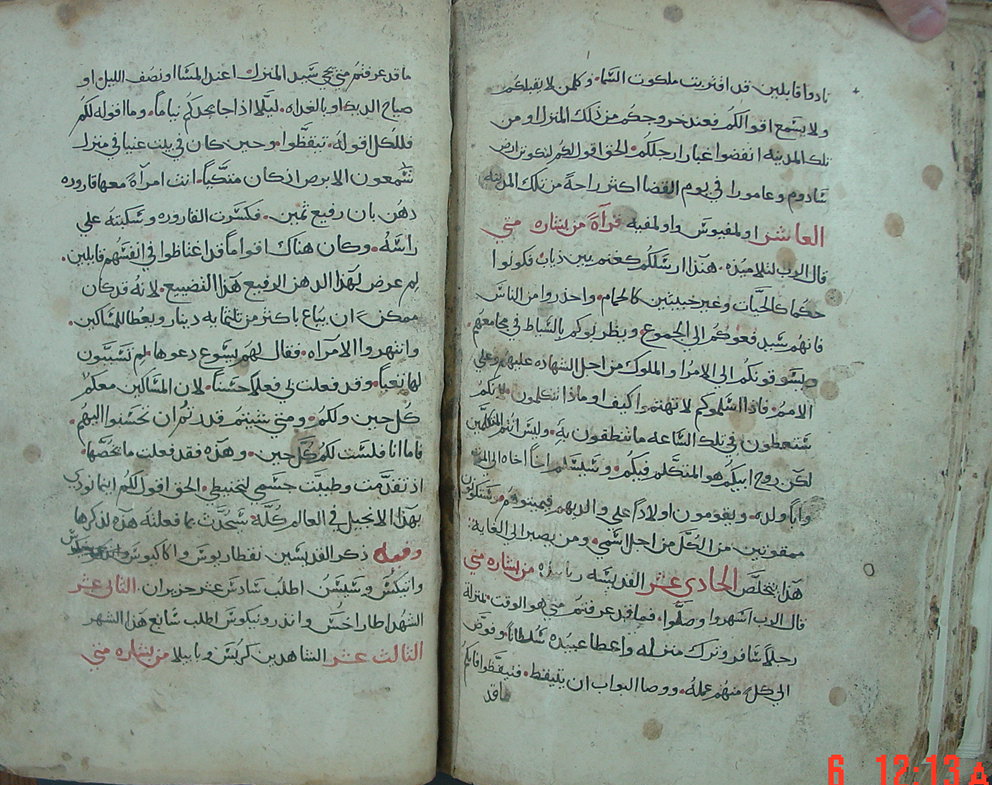 نادوا قايلين قد اقتربت ملكوت السما. وكلمن لا يقبلكم
ولا يسمع اقوالكم فعند خروجكم من ذلك المنزل او من
تلك المدينه انفضوا غبار ارجلكم. الحق اقول لكم لتكونن ارض
سادوم وعامورا في يوم القضا اكثر راحة من تلك المدينه
العاشر اولمفيوس واولمفيه قرآة من بشاره متي
قال الرب لتلاميذه. هنذا ارسلكم كغنم بين ذياب فكونوا
حكما كالحيات وغير خبيثين كالحمام. واحذروا من الناس
فانهم سيدفعوكم الي الجموع. ويضربوكم بالسياط في مجامعهم.
ويسوقونكم الي الامرا والملوك من اجل الشهاده عليهم وعلي
الامم. فاذا اسلموكم لا تهتموا كيف او ماذا تتكلمون. لانكم
ستعطون في تلك الساعه ما تنطقون به. وليس انتم المتكلمين
لكن روح ابيكم هو المتكلم فيكم. وسيسلم اخاً اخاه الي الموت
واباً ولده. ويقومون اولاداً علي والديهم فيميتوهم. وستكونون
ممقوتين من الكل من اجل اسمي. ومن يصبر الي الغاية.
هذا يتخلص الحادي عشر القديسه من بشاره متي
قال الرب اسهروا وصلوا. فما قد عرفتم متي هو الوقت. بمنزلة
رجلاً سافر وترك منزله واعطا عبيده سلطاناً وفوض
الي كل منهم عمله. ووصا البواب ان يتيقظ. فتيقظوا فانكم
ماقد
ما قد عرفتم متي يجي سيد المنزل اعند المسا او نصف الليل او
صياح الديك او بالغداه. ليلا اذا جا يجدكم نياماً. وما اقوله لكم
فللكل اقوله. تيقظوا. وحين كان في بيت عنيا في منزل
سمعون الابرص اذ كان متكياً. اتت امرآة معها قاروره
دهن بان رفيع ثمين. فكسرت القاروره وسكبته علي
راسه. وكان هناك اقواماً قد اغتاظوا في انفسهم قايلين.
لم عرض لهذا الدهن الرفيع هذا التضييع. لانه قد كان
ممكن ان يباع باكثر من ثلثمايه دينار ويعطا للمساكين.
وانتهروا الامرآه. فقال لهم يسوع دعوها لم تسببون
لها تعباً. وقد فعلت بي فعلاً حسناً. لان المساكين معكم
كل حين ولكم. ومتي شيتم قدرتم ان تحسنوا اليهم.
فاما انا فلست لكم كل حين. وهذه فقد فعلت ما يخصها.
اذ تقدمت وطيبت جسمي لتحنيطي. الحق اقول لكم اينما نودي
بهذا الانجيل في العالم كله سيحدث بما فعلته هذه لذكرها
وفيه ذكر القديسين نقطاريوس واكاكيوس
وانيكس وسيسن اطلب سادس عشر حزيران. الثاني عشر
الشهدا طاراخس واندرونيكوس اطلب سابع هذا الشهر
الثالث عشر الشاهدين كربس وبابيلا من بشاره متي
6 12:13 A